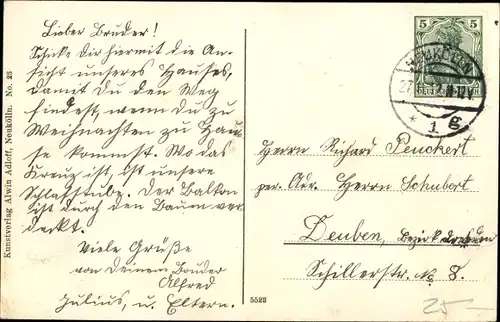 Lieber Bruder!
Schicke Dir hiermit die An-
sicht unseres Hauses,
damit Du den Weg
findest, wenn du zu
Weihnachten zu Hau-
se kommst. Wo das
Kreuz ist, ist unsere
Schlafstube. Der Balkon
ist durch den Baum ver-
deckt.
Viele Grüße
von Deinem Bruder
Alfred
Julius, u. Eltern.
Kunstverlag Alwin Adloff, Neukölln. No. 23
5523
5 5
NEUKÖLLN
* 1 g
Herrn Richard Peuckert
per. Adr. Herrn Schubert
Deuben, Bezirk Dresden
Schillerstr. No 8.
25-